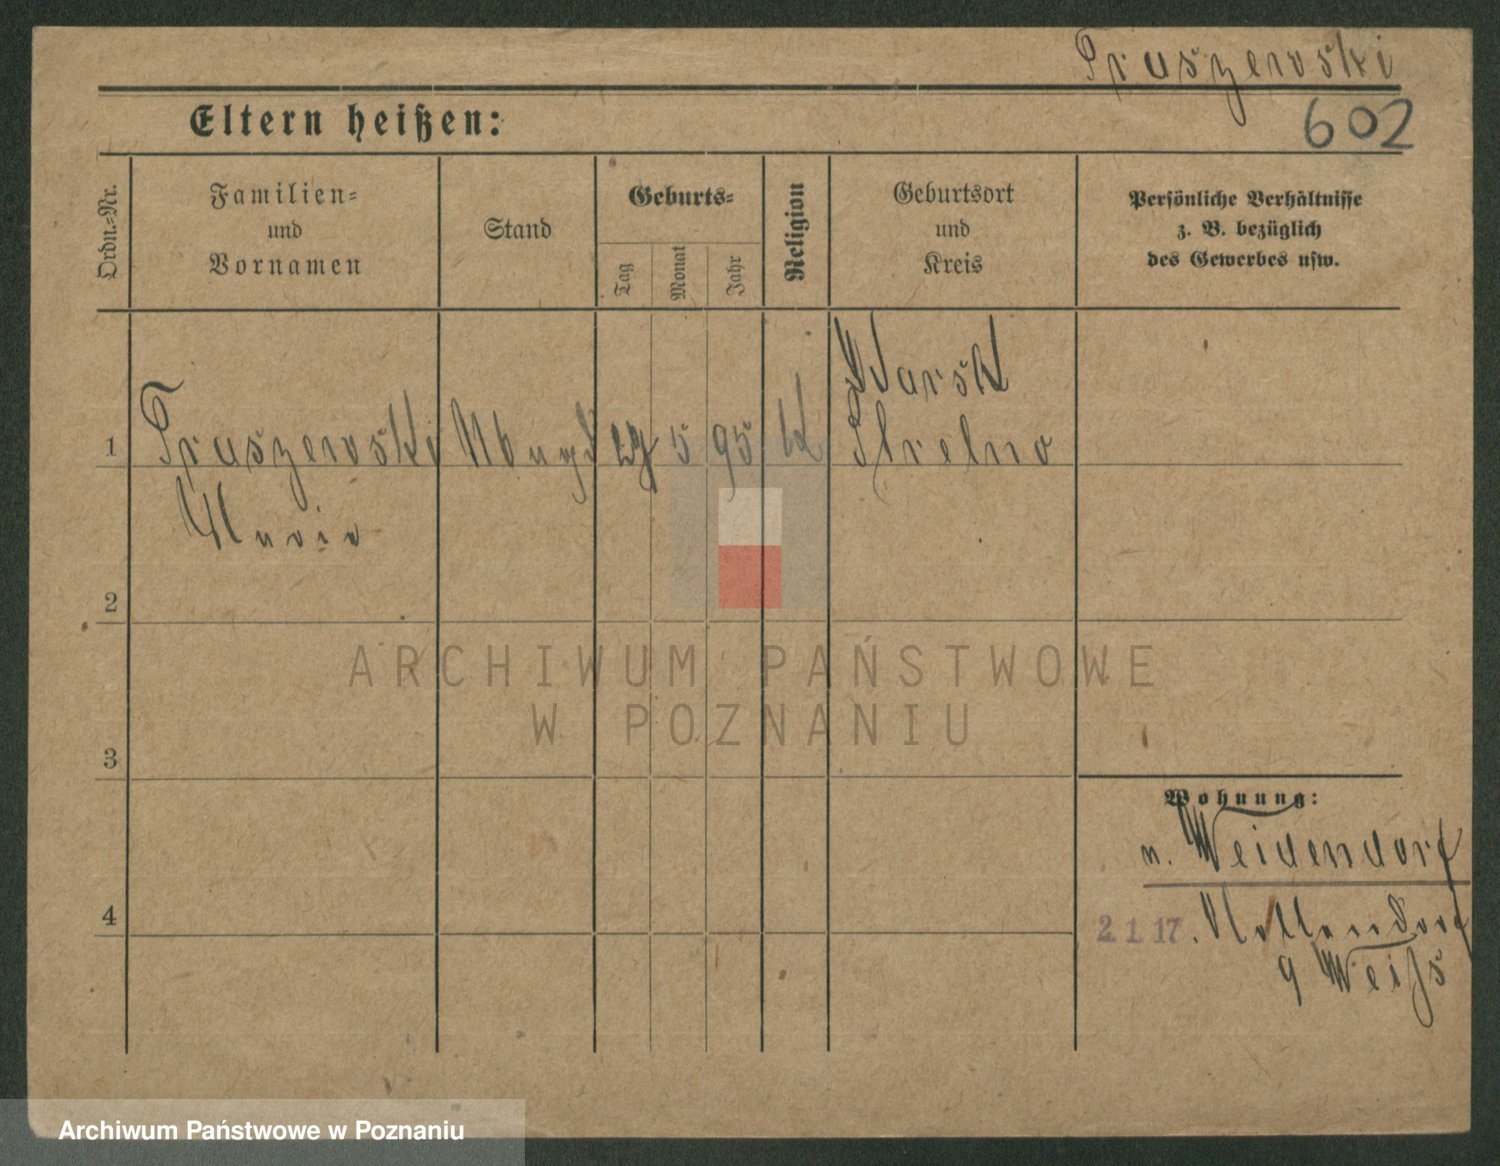 Pruszewski
602
Eltern heißen:
Ordn.-Nr.
Familien-
und
Vornamen
Stand
Geburts-
Tag
Monat
Jahr
Religion
Geburtsort
und
Kreis
Persönliche Verhältnisse
z. B. bezüglich
des Gewerbes usw.
1
Pruszewski
Maria
5 95
Strelno
2
3
4
ARCHIWUM PAŃSTWOWE
W POZNANIU
Wohnung:
n. Weidendorf
2 1 17. Nollendorf
9 Weiß
Archiwum Państwowe w Poznaniu